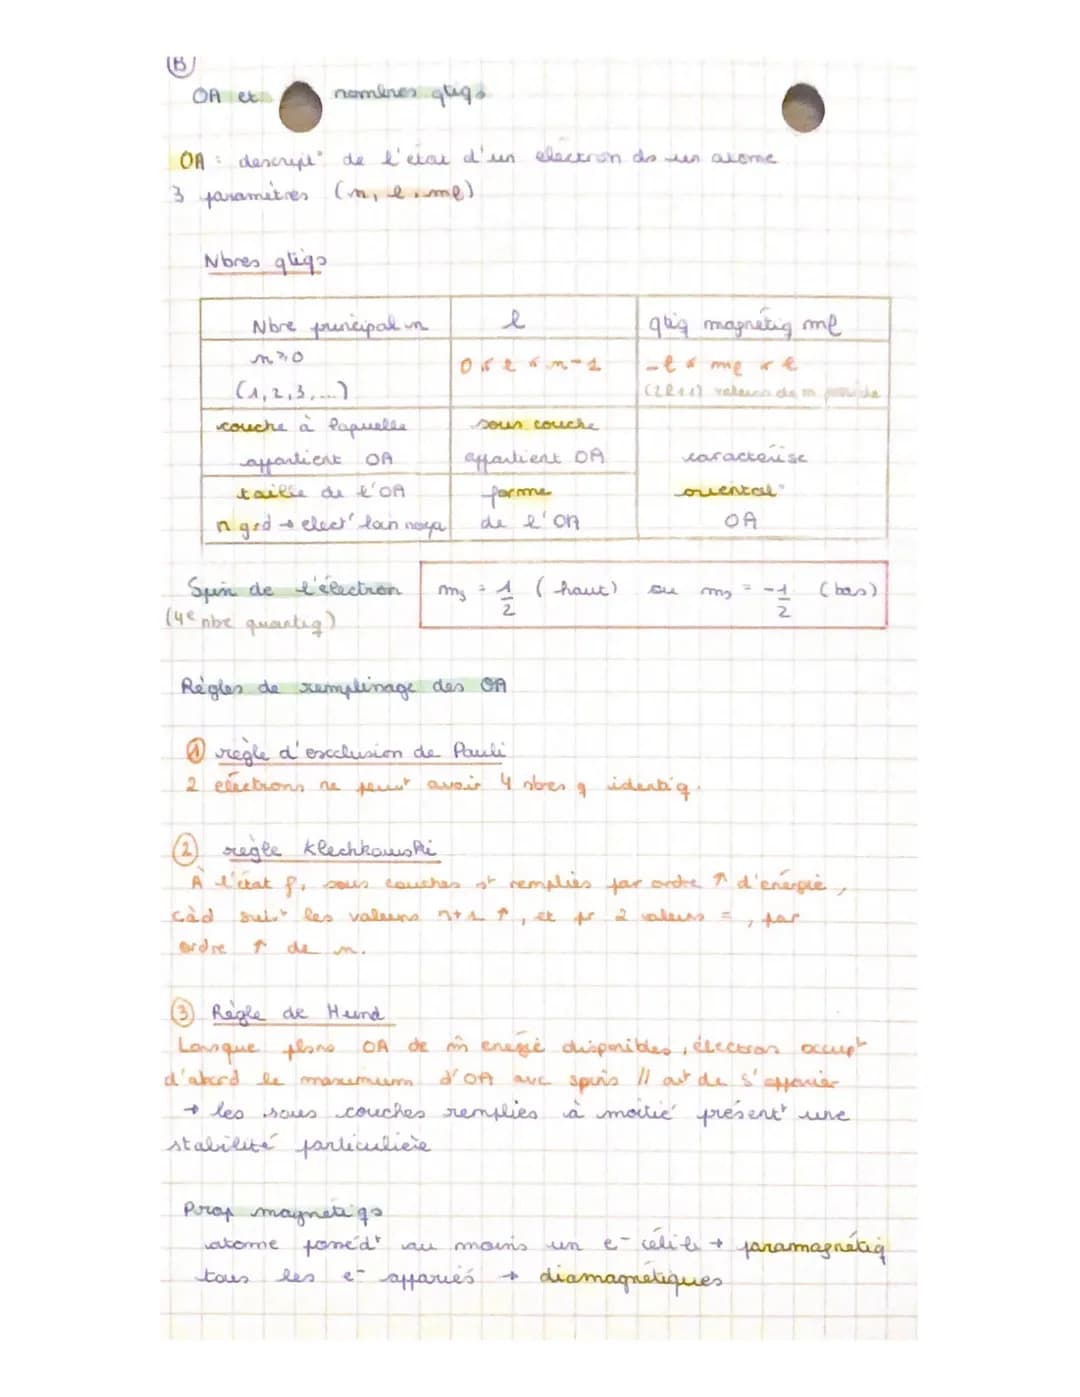 B
OA et nombres qtiqs
OA : descript° de l'état d'un électron ds un atome
3 paramètres (n, l, ml)
Nbres qtiqs
Nbre principal n
l
qtiq magnétiq ml
n ⩾ 0
(1, 2, 3, ...)
0 ≤ l ≤ n-1
-l ≤ ml ≤ l
(2l+1) valeurs de m
couche à laquelle
appartient OA
sous couche
appartient OA
caractérise
orientat°
OA
taille de l'OA
n grd → elect° loin noya
forme
de l'OA
Spin de l'électron
(4e nbe quantiq)
ms = 1/2 (haut) ou ms = -1/2 (bas)
Règles de remplinage des OA
① règle d'exclusion de Pauli
2 électrons ne peuvt avoir 4 nbres q identiq.
② règle Klechkowski
À l'état f, sous couches st remplies par ordre ↑ d'énergie,
càd suivt les valeurs n+l ↑, et pr 2 valeurs =, par
ordre ↑ de n.
③ Règle de Hund
Lorsque plsrs OA de m̂ énergie disponibles, électron occupt
d'abord le maximum d'OA avc spins // avt de s'apparier
→ les sous couches remplies à moitié présentt une
stabilité particulière
Prop magnétiqs
atome posséd au moins un e- célib → paramagnétiq
tous les e- appariés → diamagnétiques